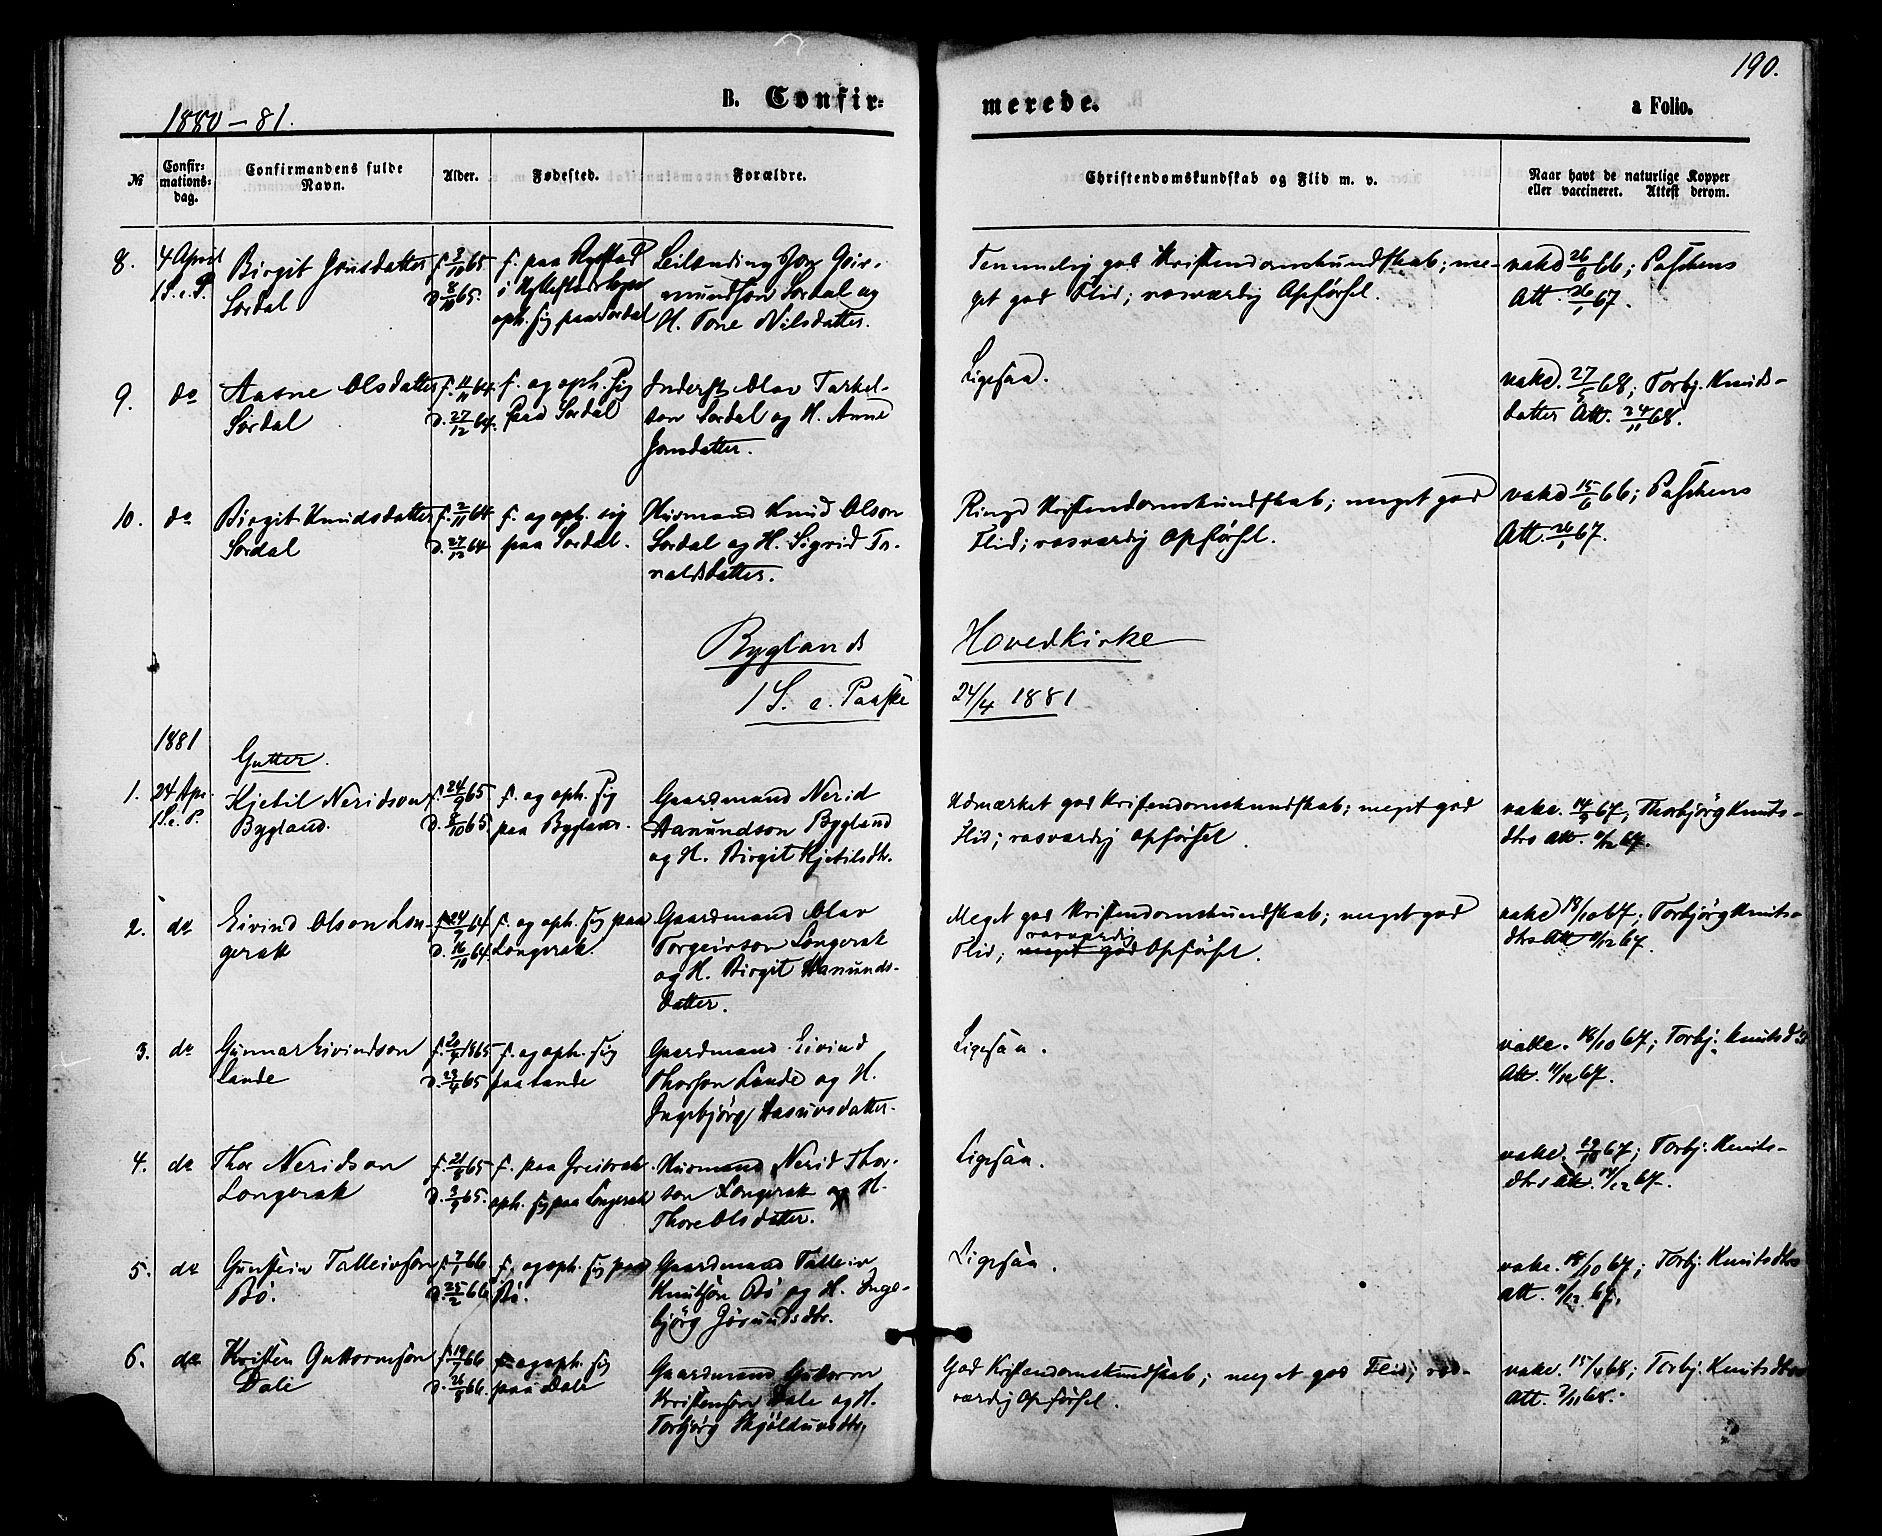 190.
1880-81.
B. Confir-
merede.
a Folio.
№
Confir-
mations-
dag.
Confirmandens fulde
Navn.
Alder.
Fødested.
Forældre.
Christendomskundskab og Flid m. v.
Naar havt de naturlige Kopper
eller vaccineret. Attest derom.
8.
4 April
1 S. e. P.
Birgit Jonsdatter
Sordal
f. 3/10 65
d. 8/10 65.
f. paa Rysstad
i Hyllestad Sogn
oph. sig paa Sordal
Leilænding Jon Geir-
mundson Sordal og
H. Tone Nilsdatter.
Temmelig god Kristendomskundskab; me-
get god Flid; rosværdig Opførsel.
vakc 26/6 66; Paschens
Att. 26/1 67.
9.
do
Aasne Olsdatter
Sordal
f. 11/11 64
d. 27/12 64.
f. og oph. sig
paa Sordal
Inderst Olav Tarkel-
son Sordal og H. Anne
Jonsdatter.
Ligesaa.
vakc. 27/5 68; Torbj. Knuds-
datter Att. 24/11 68.
10.
do
Birgit Knudsdatter
Sordal
f. 2/11 64
d. 27/12 64
f. og oph. sig
paa Sordal.
Husmand Knud Olson
Sordal og H. Sigrid
datter.
Ringe Kristendomskundskab; meget god
Flid; rosværdig Opførsel.
vakc 15/6 66; Paschens
Att. 26/1 67.
Byglands
Hovedkirke
1 S. e. Paaske
24/4 1881
1881
Gutter.
1.
24 Apr.
1 S. e. P.
Kjetil Neridson
Bygland.
f. 24/9 65
d. 8/10 65.
f. og oph. sig
paa Bygland.
Gaardmand Nerid
Aanundson Bygland
og H. Birgit Kjetilsdtr.
Udmærket god Kristendomskundskab; meget god
Flid; rosværdig Opførsel.
vakc. 14/9 67; Thorbjörg Knuts-
dtrs Att. 11/12 67.
2.
do
Eivind Olson Lon-
gerak
f. 24/9 64
d. 16/10 64
f. og oph. sig paa
Longerak.
Gaardmand Olav
Torgeirson Longerak
og H. Birgit Aanunds-
datter.
Meget god Kristendomskundskab; meget god
rosværdig
Flid; meget god Opførsel.
vakc 18/10 67; Torbjörg Knuts-
dtrs Att 11/12 67.
3.
do
Gunnar Eivindson
Lande
1865
d. 23/4 65
f. og oph. sig
paa Lande
Gaardmand Eivind
Thorson Lande og H.
Ingebjörg
Ligesaa.
vakc. 18/10 67; Torbj. Knutsd
Att. 11/12 67.
4.
do
Thor Neridson
Longerak
f. 21/8 65
d. 3/9 65.
f. paa Greibrok
oph. sig paa Longerak
Husmand Nerid Thor-
son Longerak og H.
Thore Olsdatter.
Ligesaa.
vakc. 19/10 67; Torbj. Knuts-
dtrs Att. 11/12 67.
5.
do
Gunstein Talleivson
Bö.
f. 7/1 66
d. 25/2 66
f. og oph. sig paa
Bö.
Gaardmand Talleiv
Knutson Bö og H. Inge-
björg Jörundsdtr.
Ligesaa.
vakc. 18/10 67; Torbj. Knutsdtrs
Att. 11/12 67.
6.
do
Kristen Guttormson
Dale
f. 19/7 66
d. 26/8 66.
f. og oph. sig
paa Dale
Gaardmand Guttorm
Kristenson Dale og H.
Torbjørg Skjöldulvsdtr.
God Kristendomskundskab; meget god Flid; ros-
værdig Opførsel.
vakc. 68; Torbj. Knutsdtrs
Att. 68.